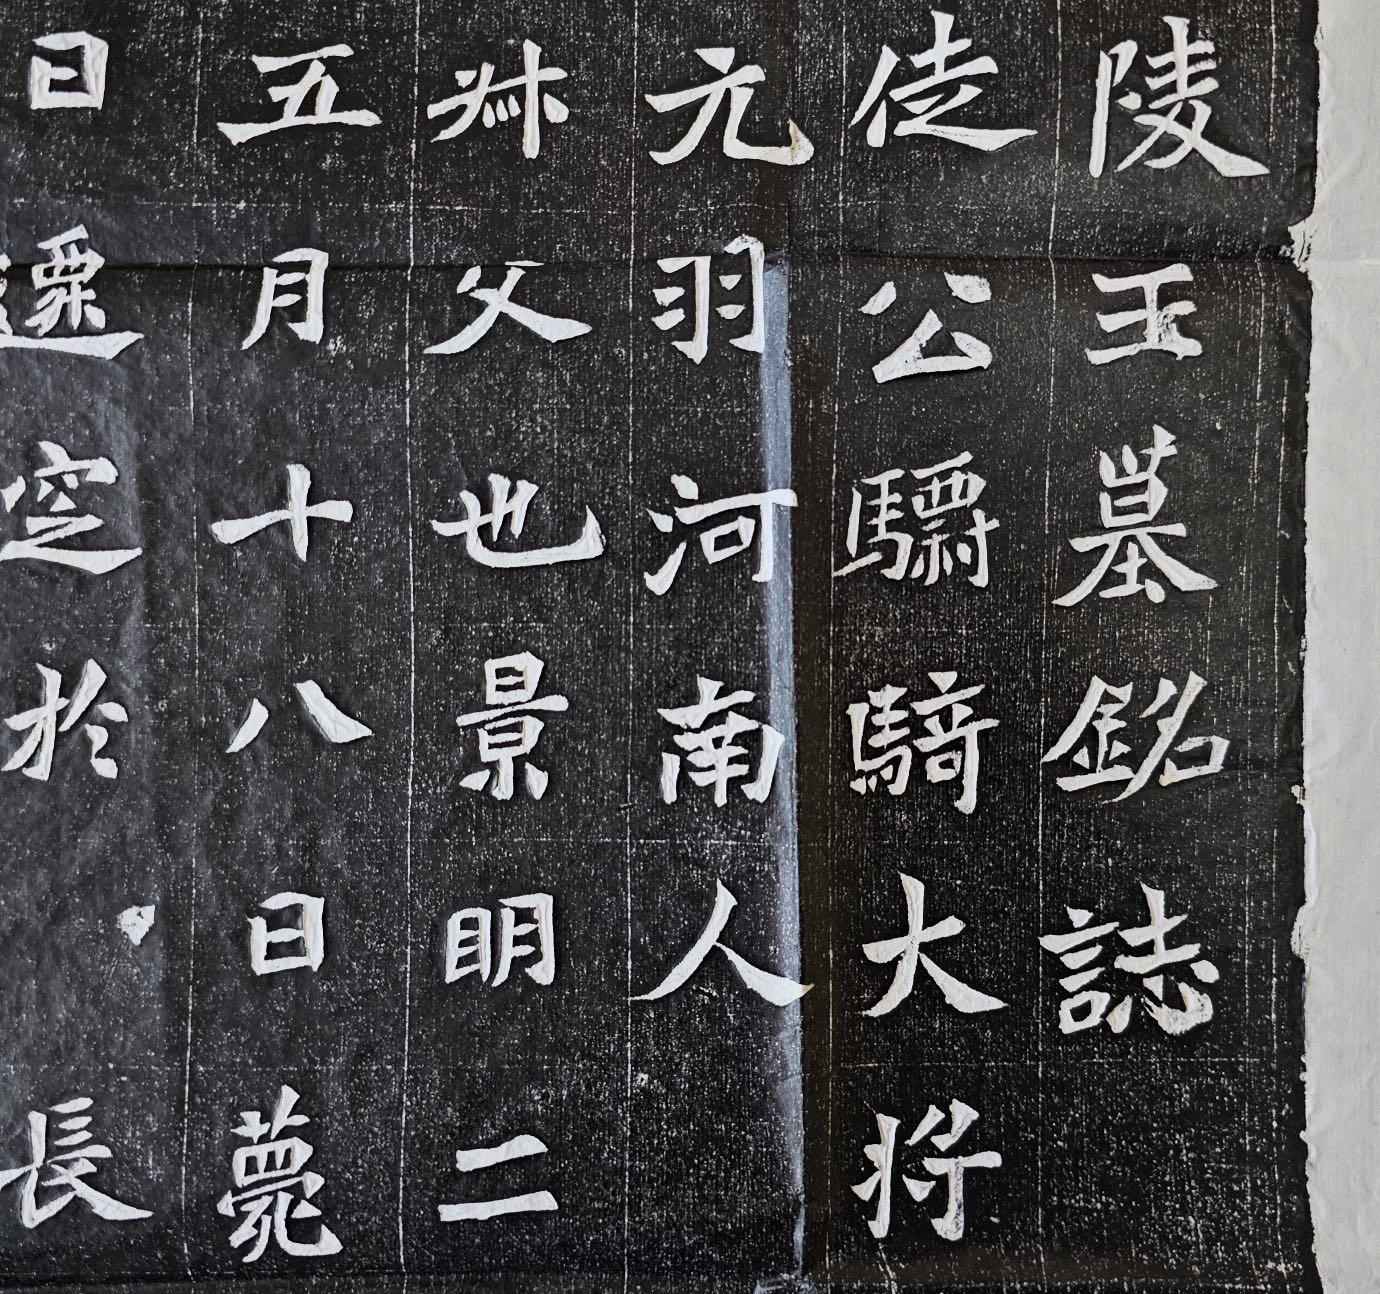 陵王墓銘誌
徒公驃騎大將
元羽河南人
叔父也景明二
五月十八日薨
日遷窆於長